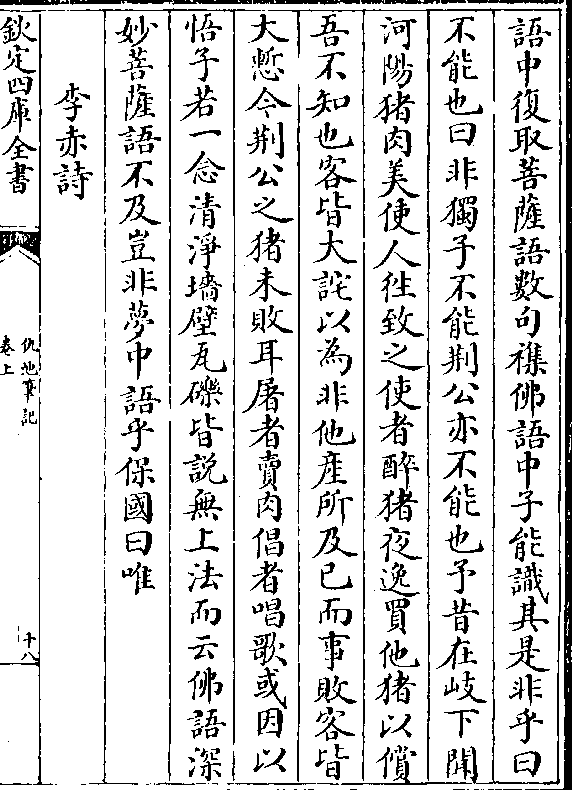 語中復取菩薩語數句襍佛語中子能識其是非乎曰
不能也曰非獨子不能荆公亦不能也予昔在岐下聞
河陽猪肉美使人徃致之使者醉猪夜逸買他猪以償
吾不知也客皆大詫以為非他産所及已而事敗客皆
大慙今荆公之猪未敗耳屠者賣肉倡者唱歌或因以
悟子若一念清淨墻壁瓦礫皆説無上法而云佛語深
妙菩薩語不及豈非夢中語乎保國曰唯
李赤詩
欽定四庫全書
仇池筆記
卷上
十八